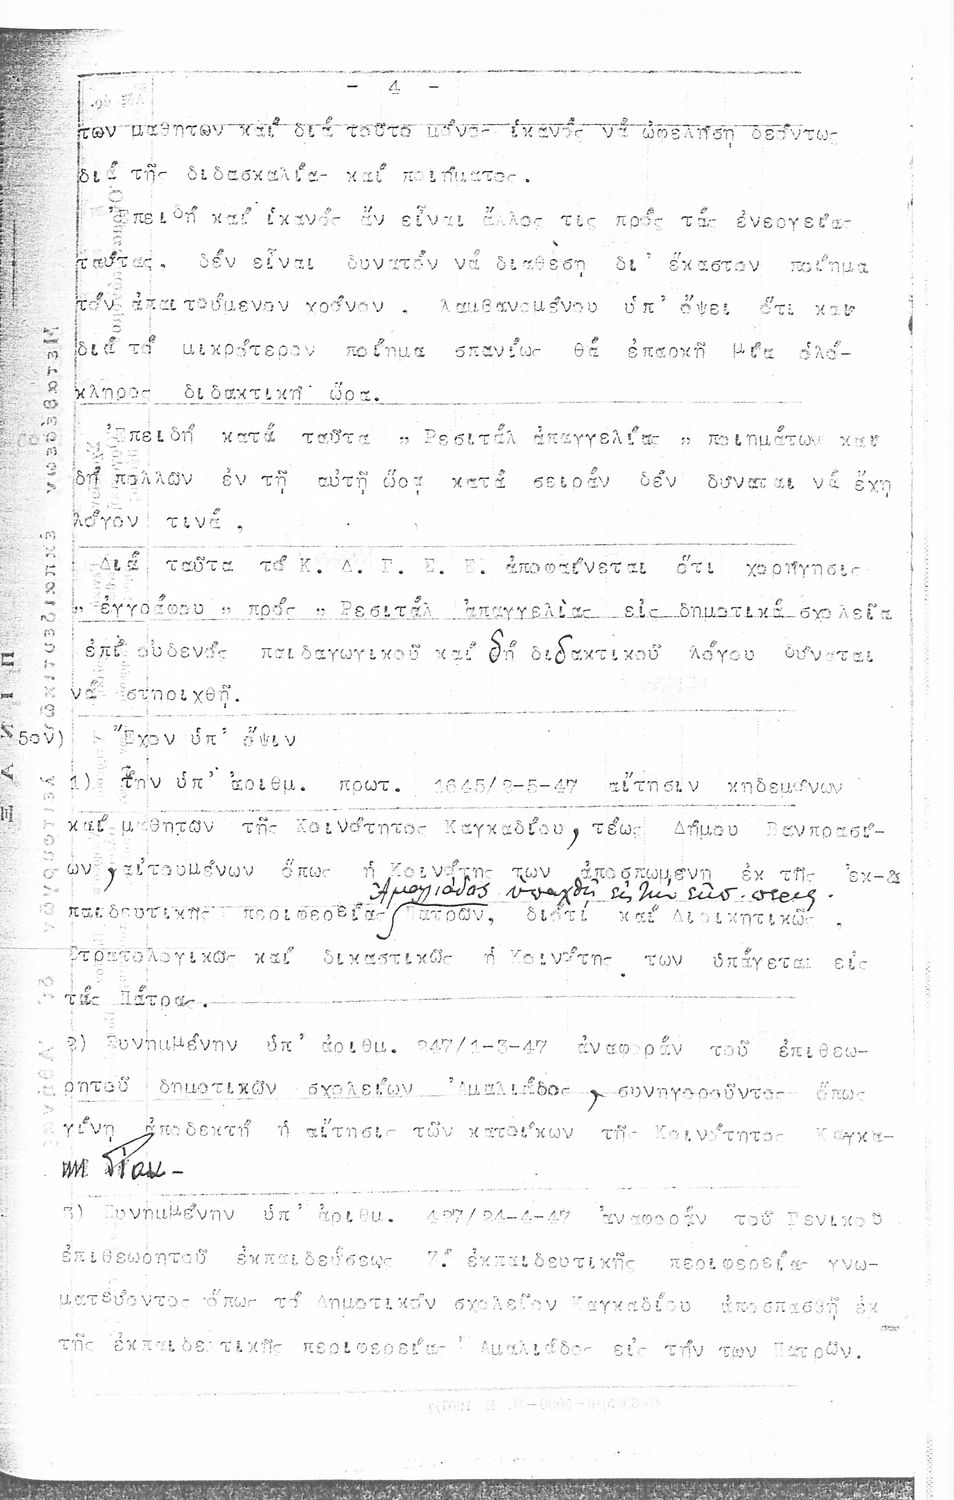 - 4 -
των μαθητων καί διά τοῦτο μόνος ἱκανός νά ὠφελήση δεόντως
διά τῆς διδασκαλίας καί ποιήματος.
Ἐπειδή καί ἱκανός ἄν εἶναι ἄλλος τις πρός τάς ἐνεργείας
ταύτας, δέν εἶναι δυνατόν νά διαθέση δι' ἕκαστον ποίημα
τόν ἀπαιτούμενον χρόνον , λαμβανομένου ὑπ' ὄψει ὅτι καί
διά τό μικρότερον ποίημα σπανίως θά ἐπαρκῆ μία ὁλό-
κληρος διδακτική ὥρα.
Ἐπειδή κατά ταῦτα " Ρεσιτάλ ἀπαγγελίας " ποιημάτων καί
δή πολλῶν ἐν τῆ αὐτῆ ὥρα κατά σειράν δέν δύναται νά ἔχη
λόγον τινά ,
Διά ταῦτα τό Κ. Δ. Γ. Σ. Ε. ἀποφαίνεται ὅτι χορήγησις
" ἐγγράφου " πρός " Ρεσιτάλ ἀπαγγελίας εἰς δημοτικά σχολεῖα
ἐπί οὐδενός παιδαγωγικοῦ καί δή διδακτικοῦ λόγου δύναται
νά στηριχθῆ.
5ον) Ἔχον ὑπ' ὄψιν
1) Τήν ὑπ' ἀριθμ. πρωτ. 1645/2-5-47 αἴτησιν κηδεμόνων
καί μαθητῶν τῆς Κοινότητος Καγκαδίου, τέως Δήμου Βουπρασί-
ων, αἰτουμένων ὅπως ἡ Κοινότης των ἀποσπωμένη ἐκ τῆς ἐκ-
Ἀμαλιάδος ὑπαχθῆ εἰς τήν ἐκπ. περιφ.
παιδευτικῆς περιφερείας Πατρῶν, διότι καί Διοικητικῶς ,
Στρατολογικῶς καί δικαστικῶς ἡ Κοινότης των ὑπάγεται εἰς
τάς Πάτρας.
2) Συνημμένην ὑπ' ἀριθμ. 247/1-3-47 ἀναφοράν τοῦ ἐπιθεω-
ρητοῦ δημοτικῶν σχολείων Ἀμαλιάδος, συνηγοροῦντος ὅπως
γίνη ἀποδεκτή ἡ αἴτησις τῶν κατοίκων τῆς Κοινότητος Καγκα-
3) Συνημμένην ὑπ' ἀριθμ. 427/24-4-47 ἀναφοράν τοῦ Γενικοῦ
ἐπιθεωρητοῦ ἐκπαιδεύσεως Ζ΄ ἐκπαιδευτικῆς περιφερείας γνω-
ματεύοντος ὅπως τό Δημοτικόν σχολεῖον Καγκαδίου ἀποσπασθῆ ἐκ
τῆς ἐκπαιδευτικῆς περιφερείας Ἀμαλιάδος εἰς τήν των Πατρῶν.